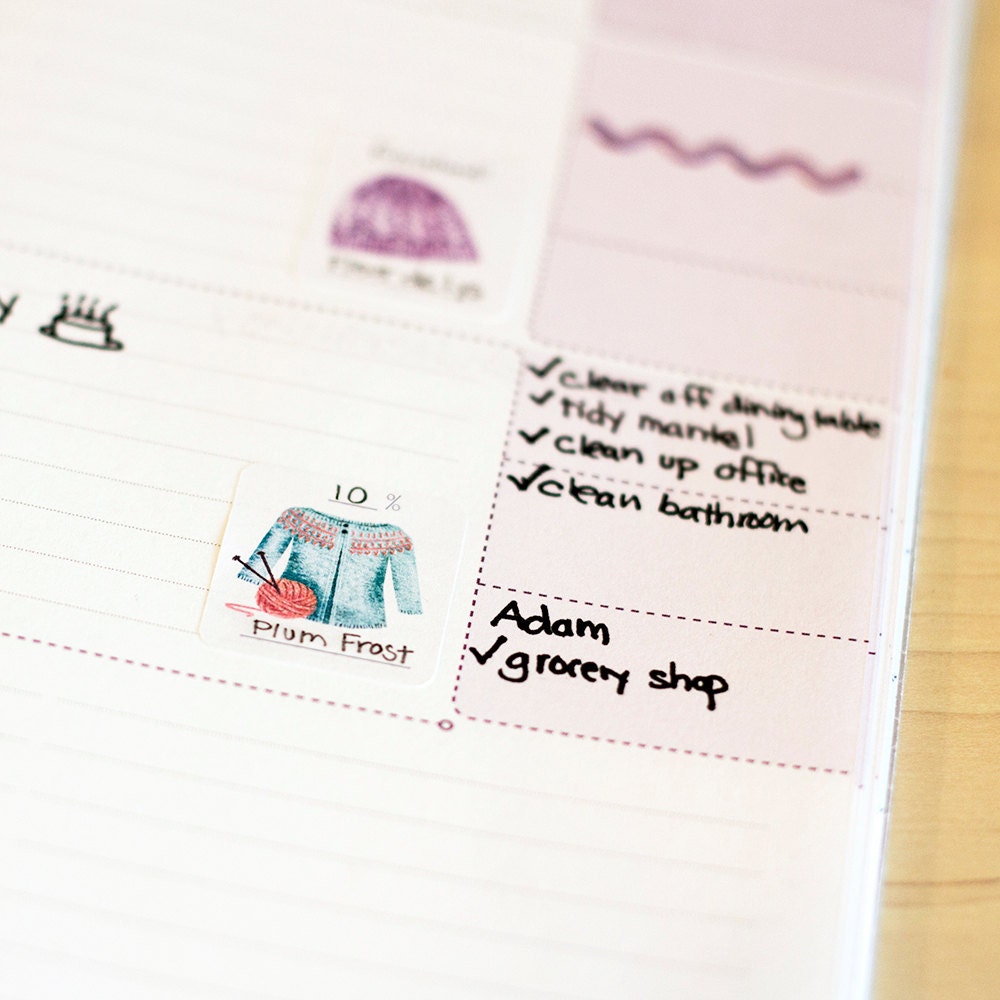 ✓clear off dining table
✓tidy mantel
✓clean up office
✓clean bathroom
10 %
Plum Frost
Adam
✓grocery shop